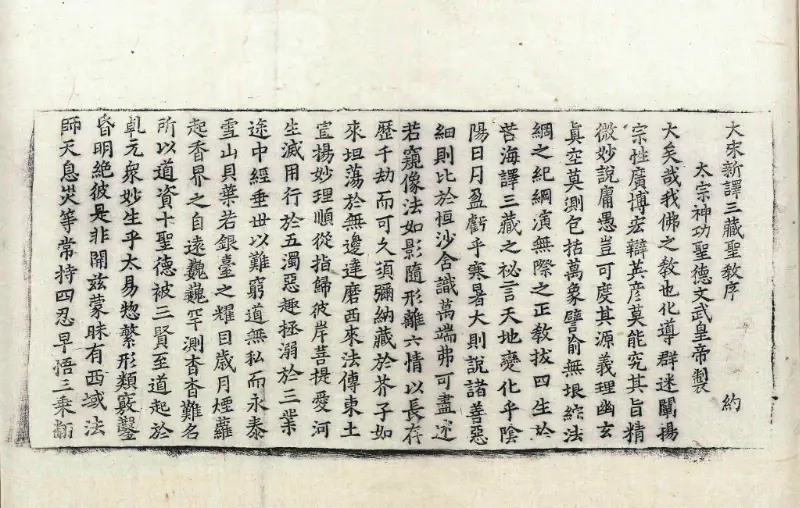 大宋新譯三藏聖教序
太宗神功聖德文武皇帝製 約
大矣哉我佛之教也化導群迷闡揚
宗性廣博宏辯英彦莫能究其旨精
微妙說庸愚豈可度其源義理幽玄
真空莫測包括萬象譬喻無垠綜法
綱之紀綱演無際之正教拔四生於
苦海譯三藏之祕言天地變化乎陰
陽日月盈虧乎寒暑大則說諸善惡
細則比於恒沙含識萬端弗可盡述
若窺像法如影隨形離六情以長存
歷千劫而可久須彌納藏於芥子如
來坦蕩於無邊達磨西來法傳東土
宣揚妙理順從指歸彼岸菩提愛河
生滅用行於五濁惡趣拯溺於三業
途中經垂世以難窮道無私而永泰
雪山貝葉若銀臺之耀目歲月煙蘿
起香界之自遠巍巍罕測杳杳難名
所以道資十聖德被三賢至道起於
乹元眾妙生乎太易惣繫形類竅鑿
昏明絕彼是非開茲蒙昧有西域法
師天息災等常持四忍早悟三乘